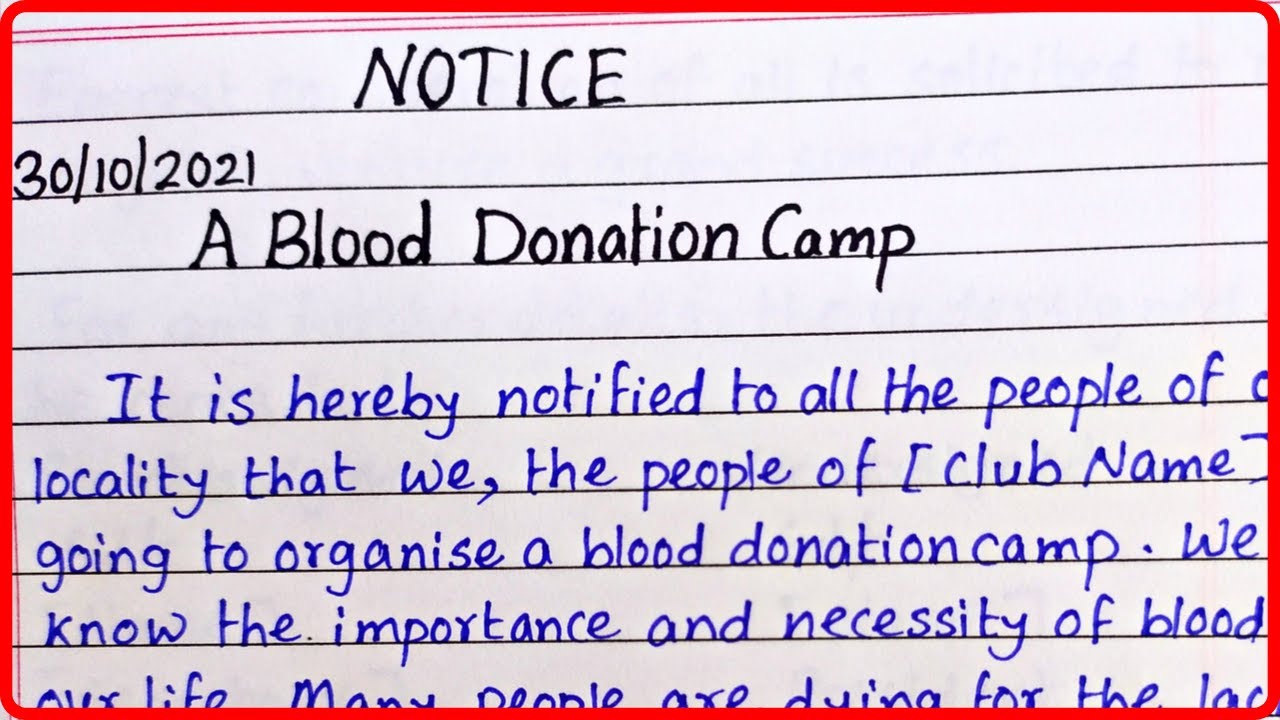 NOTICE
30/10/2021
A Blood Donation Camp
It is hereby notified to all the people of
locality that we, the people of [Club Name]
going to organise a blood donation camp. We
know the importance and necessity of blood
our life. Many people are dying for the